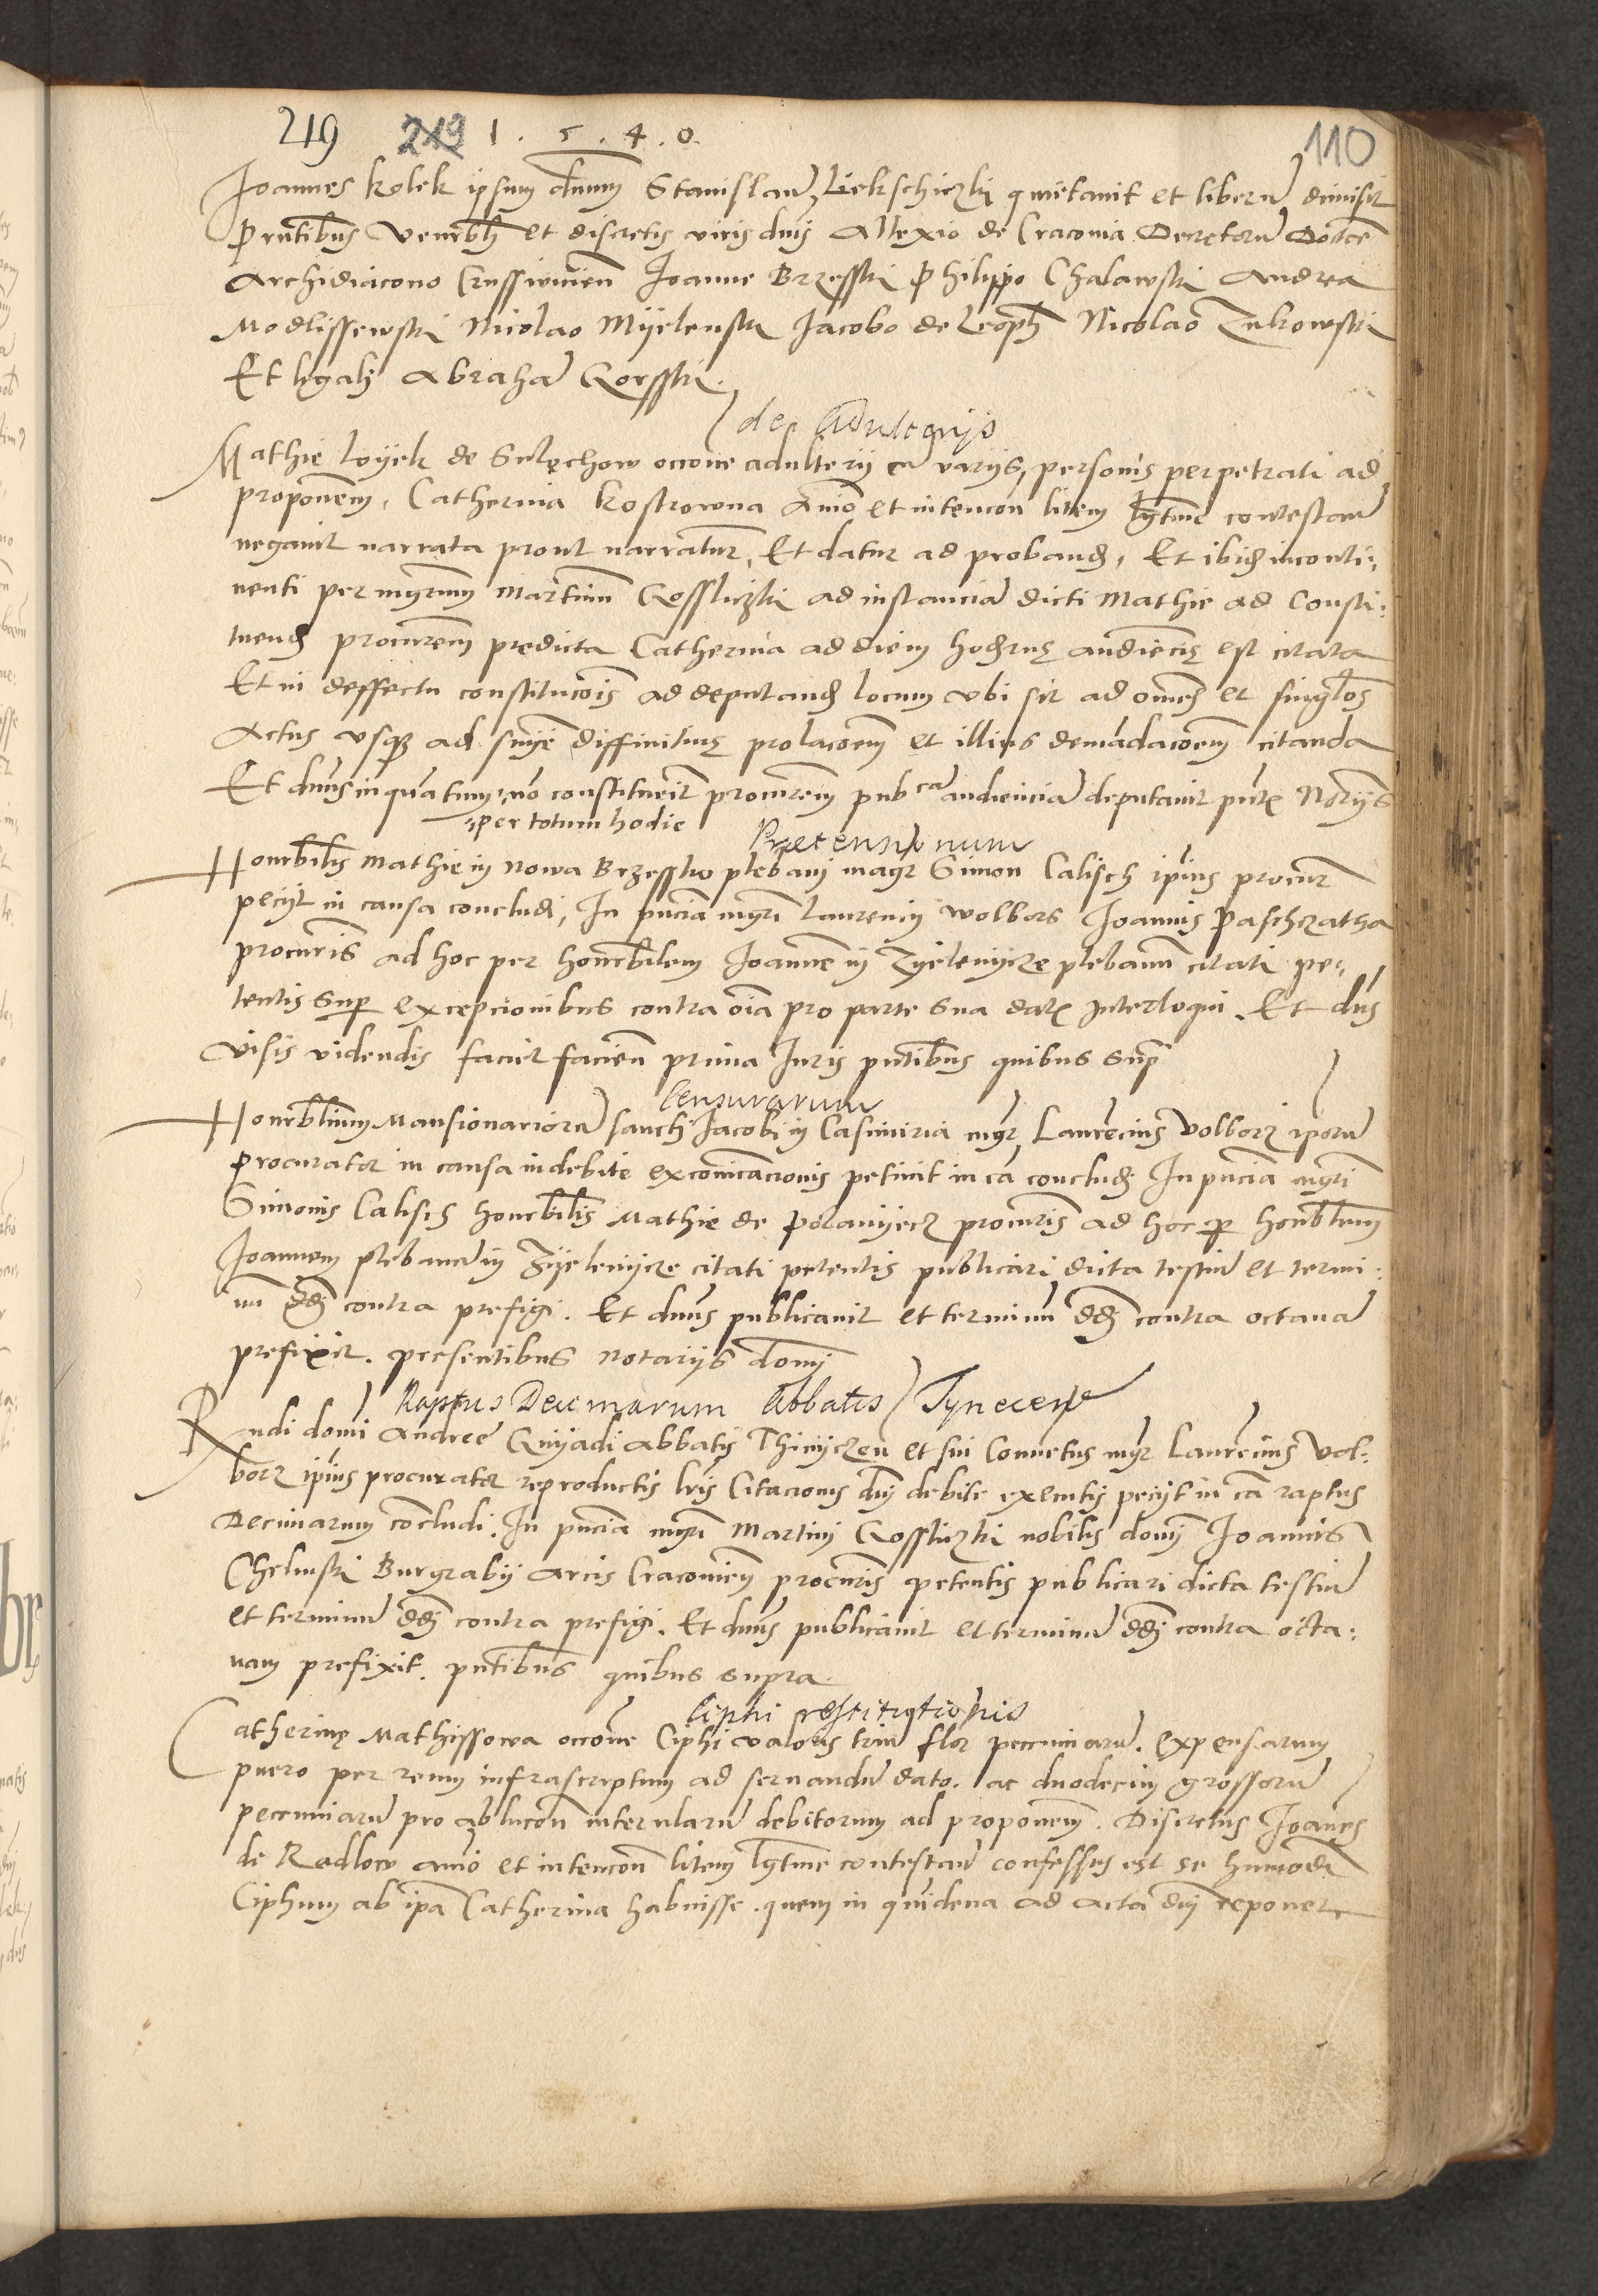 219 219 1 . 5 . 4 . 0. 110
Joannes Kolek ipsum dnum Stanislau Liekschiczki quietauit et liberu dimisit
Pntibus Venrbl et discretis viris dnis Allexio de Cracouia Decretoru Doctore
Archidiacono Joanne Brzesski Philippo Chalawski Andrea
Modlissewski Nicolao Myelenski Jacobo de Leopl Nicolao Zukowski
Et legali Abraha Gorsski.
de Adulterijs
Mathie Loyek de Sulechow occone adulterij cu varijs personis perpetrati ad
proponem. Catherina Kostrowna Animo et intencon litem lgtime contestan
negauit narrata prout narrantur. Et datur ad proband. Et ibid inconti-
nenti per mgrum Martinum Gosslyczki ad instancia dicti Mathie ad Consti-
tuend procurem predicta Catherina ad diem hodierne audiencie est citata
Et in deffectu constitucois ad deputand locum vbi sit ad omes et singlos
Actus vsq ad snye diffinitiue prolacoem et illius demandacoem citanda
Et dnus inquantum no constituerit procurem pubca audiencia deputauit pntx Norijs
per totum hodie
Pretensionum
Honrbilis Mathie in Nowa Brzessko plebani magr Simon Calisch ipius procur
peciit in causa concludi, In pncia mgri Laurencij Wolbors Joannis Paschczatha
procuris ad hoc per honrbilem Joanne in Zyelenycze plebanu citati pe-
tentis sup excepcionibus contra oia pro parte sua datx interloqui. Et dns
visis videndis faciet facien prima Juris pntibus quibus sup
Censurarum
Honrblium Mansionarioru sancti Jacobi in Casimiria mgr Laurecius Volborz iporu
Procurator in causa indebite excoicacionis petiuit in ca conclud In pncia mgri
Simonis Calisch honrbilis Mathie de Polanyecz procuris ad hoc p honrblum
Joannem plebanu in Zyelenycze citati petentis publicari dicta testiu et termi-
nu dd contra prefigi. Et dnus publicauit et terminu dd contra octaua
prefixit. presentibus notarijs domi
Raptus Decimarum Abbatis Tynecen
Rndi domi Andree Gnyadi Abbatis Thinyczen et sui Conuetus mgr Laurecius Vol-
borz ipius procurator reproductis lris Citacionis dni debite executis peciit in ca raptus
Decimarum concludi. In pncia mgri Martini Gossliczki nobilis domi Joannis
Chelmski Burgrabij arcis Cracouien procuris petentis publicari dicta testiu
et terminu dd contra prefigi. Et dnus publicauit et terminu dd contra octa-
uam prefixit. pntibus quibus supra
Ciphi restitutionis
Catherine Mathissowa occone Ciphi valoris triu flor pecuniaru. expensarum
puero per reum infrascriptum ad seruandu dato. ac duodecim grossoru
pecuniaru pro ablucon interularu debitorum ad proponem. Discretus Joanes
de Radlow aio et intencon litem lgtime contestan confessus est se humodi
Ciphum ab ipa Catherina habuisse. quem in quidena ad acta dni reponet